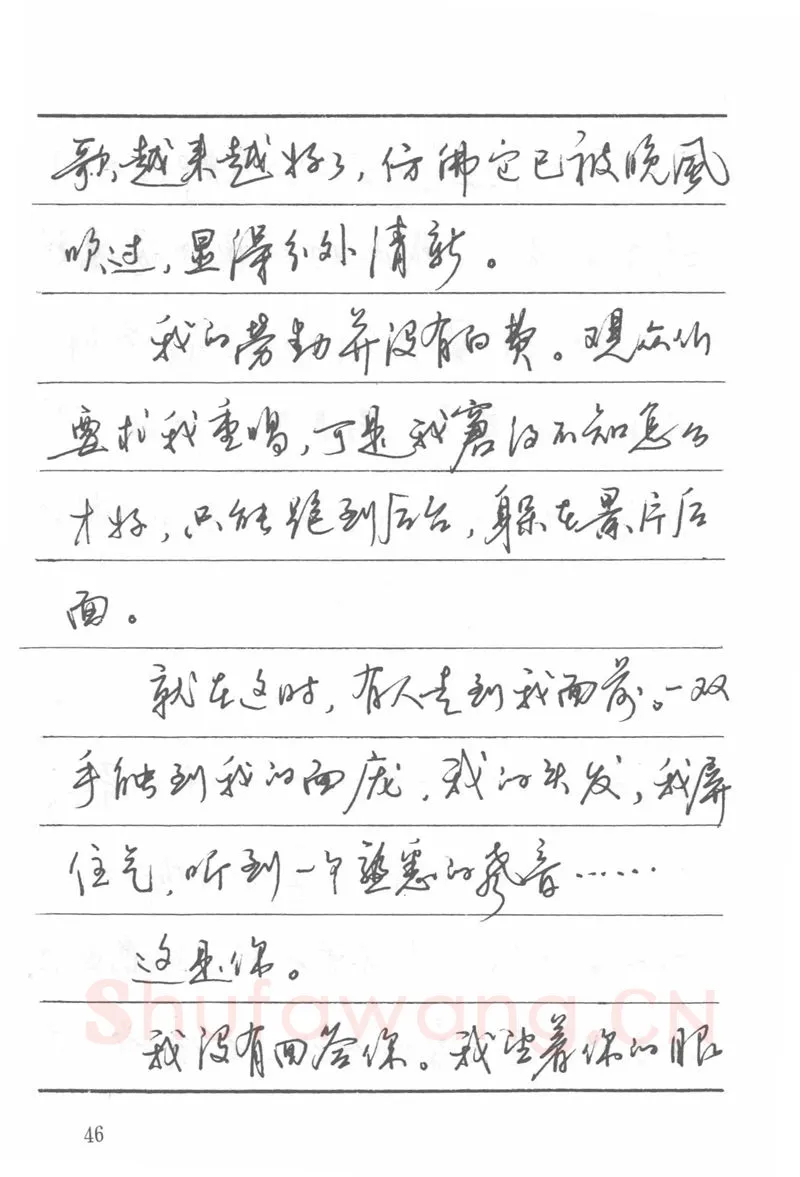 歌越来越好了，仿佛它已被晚风
吹过，显得分外清新。
我的劳动并没有白费。观众们
要求我重唱，可是我窘得不知怎么
才好，只能跑到后台，躲在景片后
面。
就在这时，有人走到我面前。一双
手触到我的面庞，我的头发，我屏
住气，听到一个熟悉的声音……
这是你。
我没有回答你。我望着你的眼
Shufawang.CN
46